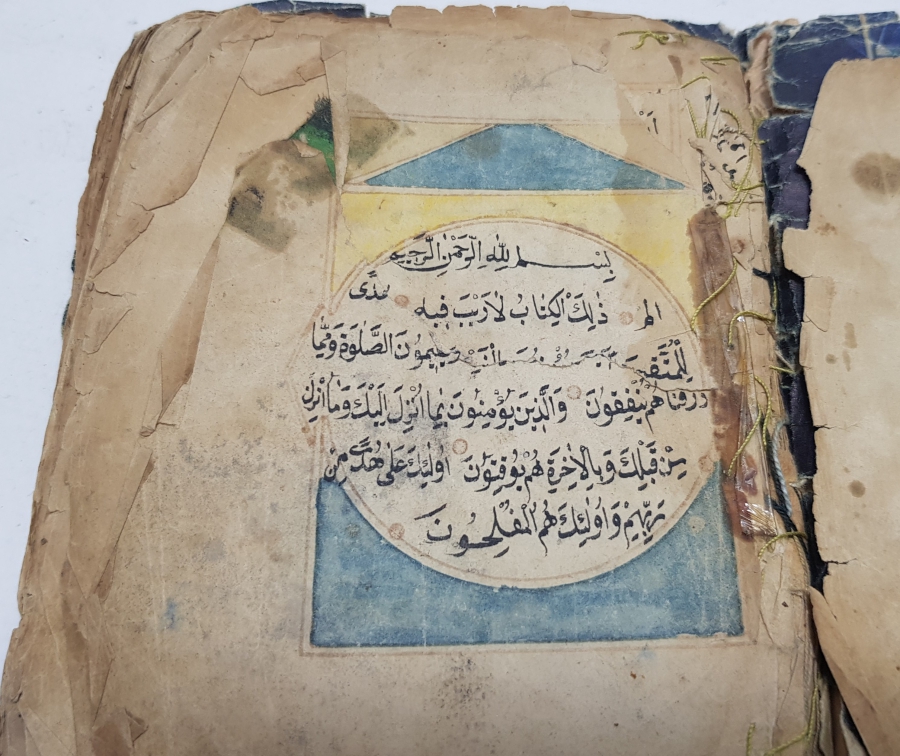 بِسْمِ اللّٰهِ الرَّحْمٰنِ الرَّحِيمِ
الم ذٰلِكَ الْكِتَابُ لَا رَيْبَ فِيهِ هُدًى
لِلْمُتَّقِينَ وَيُقِيمُونَ الصَّلٰوةَ وَمِمَّا
رَزَقْنَاهُمْ يُنْفِقُونَ وَالَّذِينَ يُؤْمِنُونَ بِمَا اُنْزِلَ اِلَيْكَ وَمَا اُنْزِلَ
مِنْ قَبْلِكَ وَبِالْاٰخِرَةِ هُمْ يُوقِنُونَ اُولٰئِكَ عَلٰى هُدًى مِنْ
رَبِّهِمْ وَاُولٰئِكَ هُمُ الْمُفْلِحُونَ